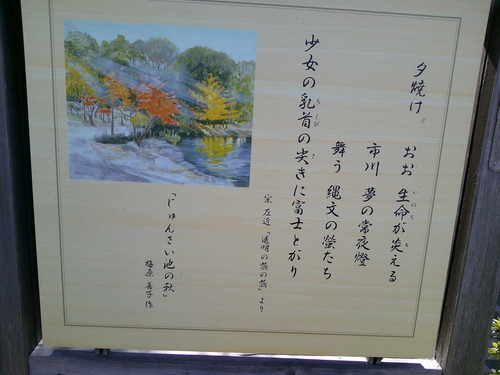 夕焼け。
おお 生命が炎える
市川 夢の常夜燈
舞う 縄文の螢たち
少女の乳首の尖きに富士とがり
宗 左近「透明の蕊の蕊」より
「じゅんさい池の秋」
梅原 義子 作